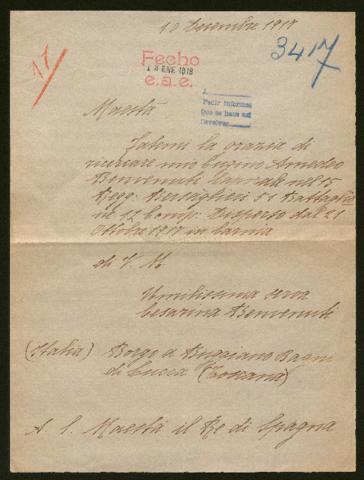 10 Dicembre 1917
3417
17
Fecho
14 ENE 1918
e.a.e.
A
Pedir informes
Que se haga así
Devolver
Maestà
Fatemi la grazia di
ricercare mio Amedeo
Benvenuti nel 15
Regg. Bersiglieri 51 Battaglio
ne 12 Comp. Disperso dal 21
Ottobre 1917 in
di V. M.
Umilissima serva
Cesarina Benvenuti
(Italia) Borgo a Buggiano Bagni
di Lucca (Toscana)
A S. Maestà il Re di Spagna